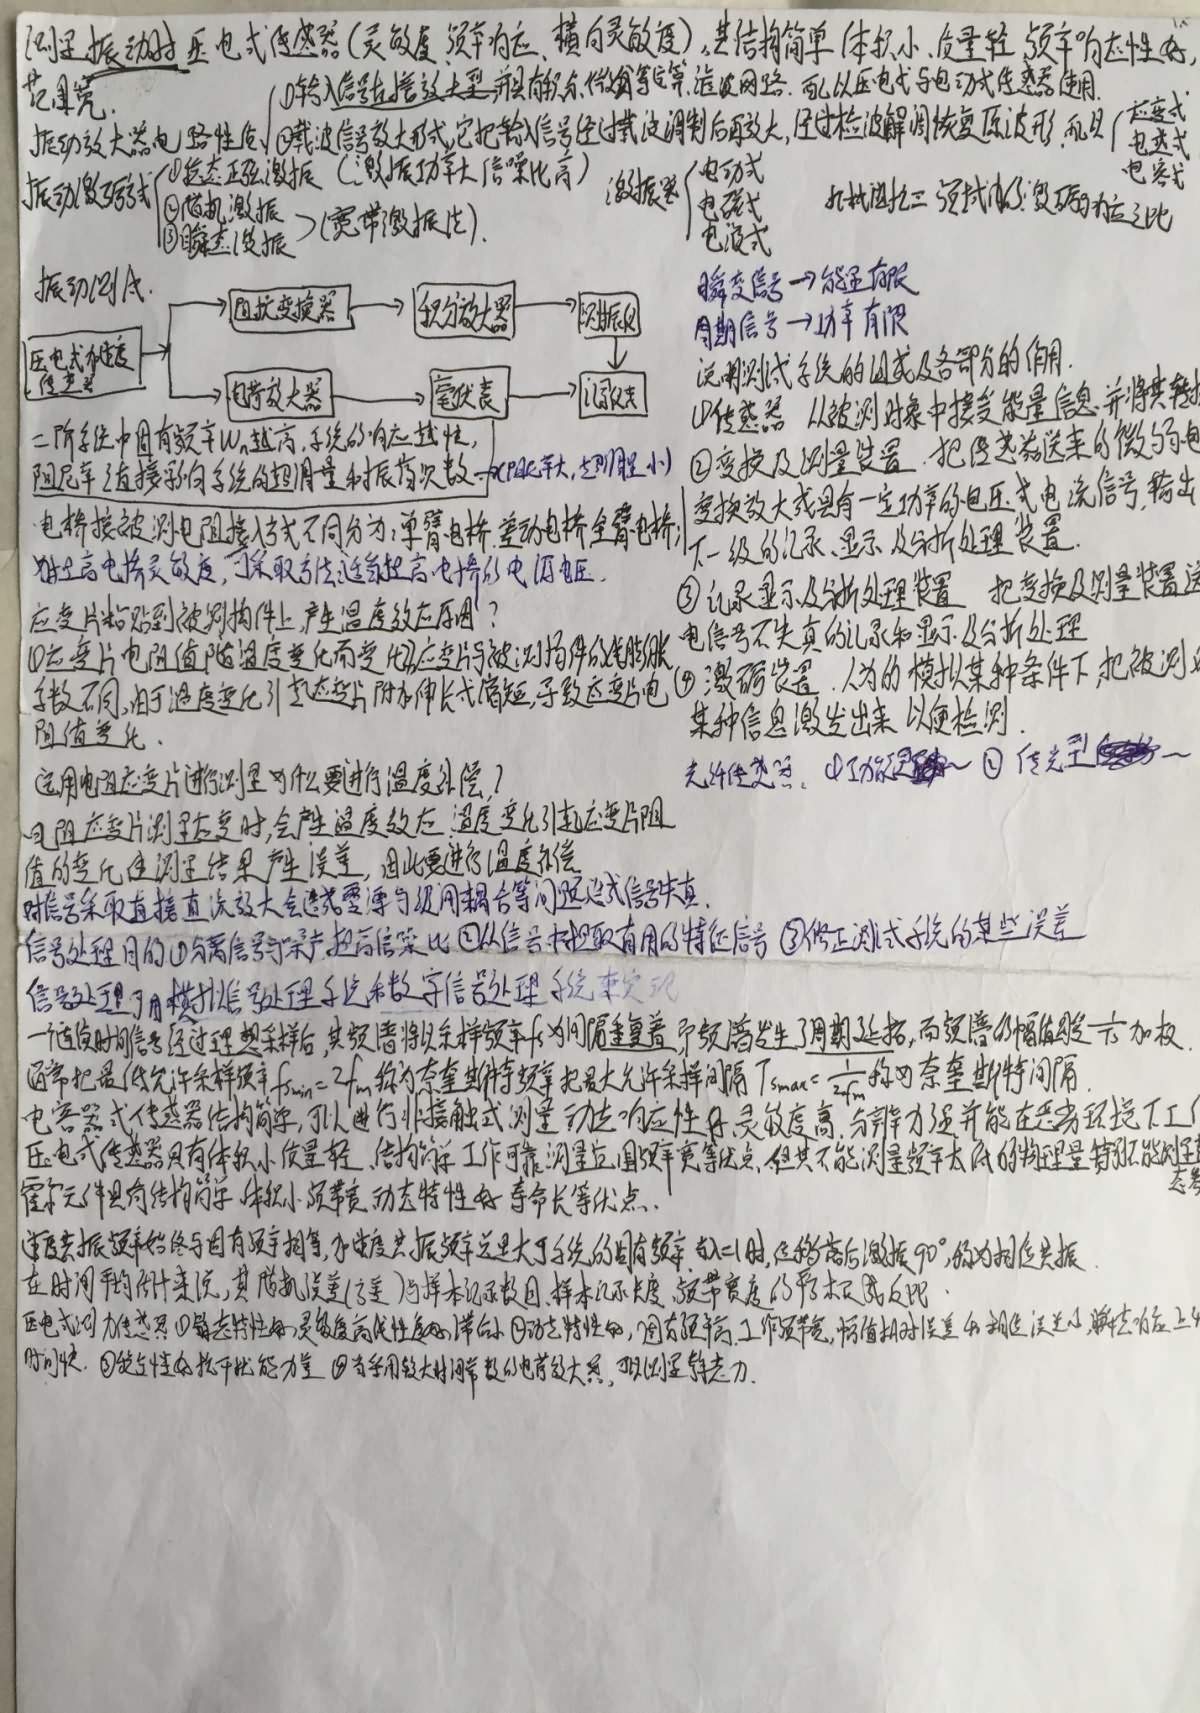 测量振动时压电式传感器(灵敏度、频率响应、横向灵敏度),其结构简单 体积小、质量轻、频率响应性好,
范围宽.
①输入信号直接放大型,并具有积分、微分等运算、滤波网路. 可以压电式与电动式传感器使用.
振动放大器电路性质 ②载波信号放大形式,它把输入信号经过载波调制后再放大,经过检波解调恢复原波形,可以
应变式
电感式
电容式
振动激励方式
①稳态正弦激振 (激振功率大 信噪比高)
②随机激振
③瞬态激振
(宽带激振法).
激振器
电动式
电磁式
电液式
机械阻抗= 频域内的激励与响应之比
振动测试.
压电式加速度
传感器
阻抗变换器
积分放大器
测振仪
电荷放大器
毫伏表
记录仪表
瞬变信号→能量有限
周期信号→功率有限
二阶系统中固有频率Wn越高,系统的响应越快,
阻尼率ξ直接影响系统的超调量和振荡次数→(阻尼率大,超调量小)
电桥按被测电阻接入方式不同分为:单臂电桥、差动电桥 全臂电桥;
为提高电桥灵敏度,可采取方法:适当提高电桥的电源电压.
应变片粘贴到被测构件上,产生温度效应原因?
①应变片电阻值随温度变化而变化②应变片与被测构件的线膨胀
系数不同,由于温度变化引起应变片附加伸长或缩短,导致应变片电
阻值变化.
运用电阻应变片进行测量为什么要进行温度补偿?
电阻应变片测量应变时,会产生温度效应 温度变化引起应变片阻
值的变化使测量结果产生误差,因此要进行温度补偿
说明测试系统的组成及各部分的作用.
①传感器 从被测对象中接受能量信息,并将其转换
②变换及测量装置. 把传感器送来的微弱电
变换放大成具有一定功率的电压或电流信号,输出
下一级的记录、显示 及分析处理装置.
③记录显示及分析处理装置 把变换及测量装置送
电信号不失真的记录和显示及分析处理
④激励装置. 人为的模拟某种条件下,把被测
某种信息激发出来 以便检测.
光纤传感器. ①功能型~ ②传光型~
对信号采取直接直流放大会造成零漂与级间耦合等问题造成信号失真.
信号处理目的①分离信号与噪声,提高信噪比 ②从信号中提取有用的特征信号 ③修正测试系统的某些误差
信号处理可用模拟信号处理系统和数字信号处理系统来实现
一个连续时间信号经过理想采样后,其频谱将以采样频率fs为间隔重复着,即频谱发生了周期延拓,而频谱的幅值因受1/Ts加权.
通常把最低允许采样频率fsmin=2fm称为奈奎斯特频率把最大允许采样间隔Tsmax=1/2fm称为奈奎斯特间隔.
电容器式传感器结构简单,可以进行非接触式测量 动态响应性好、灵敏度高,分辨力强并能在恶劣环境下工作
压电式传感器具有体积小 质量轻、结构简单 工作可靠,测量范围频率宽等优点,但其不能测量频率太低的物理量特别不能测量静
态参
霍尔元件具有结构简单、体积小、频带宽 动态特性好 寿命长等优点.
速度共振频率始终与固有频率相等,加速度共振频率总是大于系统的固有频率,当λ=1时,位移落后激振90°,称为相位共振.
在时间平均估计来说,其随机误差(方差)与样本记录数目、样本记录长度、频带宽度的平方根成反比.
压电式测力传感器①静态特性好,灵敏度高 线性度好,滞后小 ②动态特性好,固有频率高,工作频带宽,幅值相对误差和相位误差小,瞬态响应上升
时间快. ③稳定性好抗干扰能力差 ④当采用较大时间常数的电荷放大器,可以测量静态力.